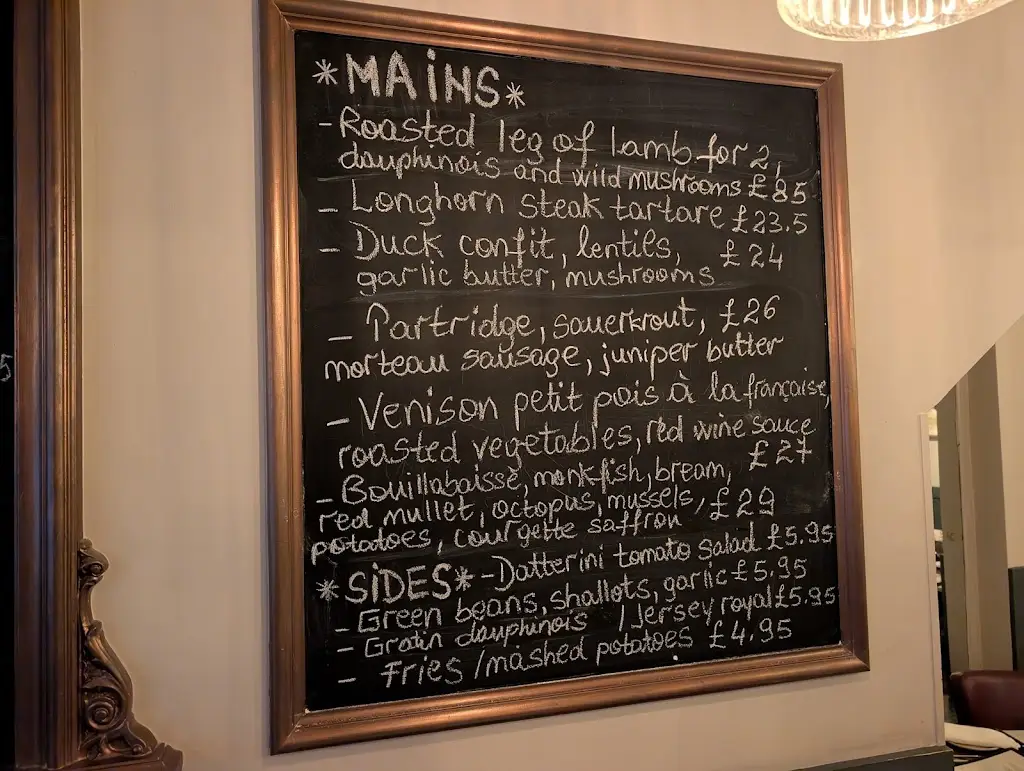 *MAiNS*
- Roasted leg of lamb for 2,
dauphinois and wild mushrooms £85
- Longhorn steak tartare £23.5
- Duck confit, lentils, £24
garlic butter, mushrooms
- Partridge, sauerkrout, £26
morteau sausage, juniper butter
- Venison petit pois à la française,
roasted vegetables, red wine sauce
£27
- Bouillabaisse, monkfish, bream,
red mullet, octopus, mussels, £29
potatoes, courgette saffron
*SiDES* - Datterini tomato salad £5.95
- Green beans, shallots, garlic £5.95
- Gratin dauphinois / Jersey royal £5.95
- Fries / mashed potatoes £4.95
5